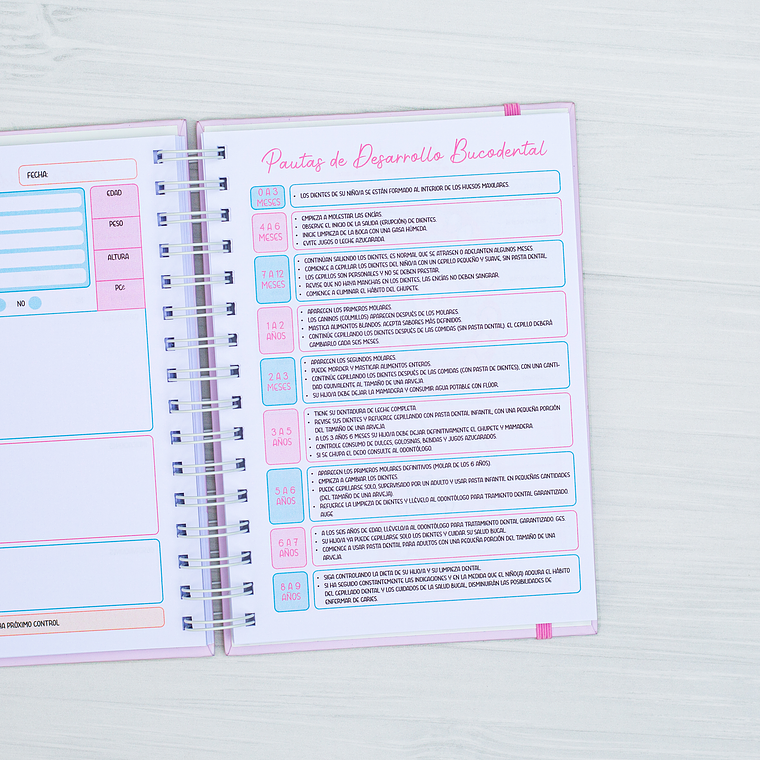 FECHA:
EDAD
PESO
ALTURA
PC:
NO
A PRÓXIMO CONTROL
Pautas de Desarrollo Bucodental
0 A 3
MESES
• LOS DIENTES DE SU NIÑO/A SE ESTÁN FORMADO AL INTERIOR DE LOS HUESOS MAXILARES.
4 A 6
MESES
• EMPIEZA A MOLESTAR LAS ENCÍAS.
• OBSERVE EL INICIO DE LA SALIDA (ERUPCIÓN) DE DIENTES.
• INICIE LIMPIEZA DE LA BOCA CON UNA GASA HÚMEDA.
• EVITE JUGOS O LECHE AZUCARADA.
7 A 12
MESES
• CONTINÚAN SALIENDO LOS DIENTES, ES NORMAL QUE SE ATRASEN O ADELANTEN ALGUNOS MESES.
• COMIENCE A CEPILLAR LOS DIENTES DEL NIÑO/A CON UN CEPILLO PEQUEÑO Y SUAVE, SIN PASTA DENTAL
• LOS CEPILLOS SON PERSONALES Y NO SE DEBEN PRESTAR.
• REVISE QUE NO HAYA MANCHAS EN LOS DIENTES, LAS ENCÍAS NO DEBEN SANGRAR.
• COMIENCE A ELIMINAR EL HÁBITO DEL CHUPETE.
1 A 2
AÑOS
• APARECEN LOS PRIMEROS MOLARES.
• LOS CANINOS (COLMILLOS) APARECEN DESPUÉS DE LOS MOLARES.
• MASTICA ALIMENTOS BLANDOS. ACEPTA SABORES MÁS DEFINIDOS.
• CONTINÚE CEPILLANDO LOS DIENTES DESPUÉS DE LAS COMIDAS (SIN PASTA DENTAL). EL CEPILLO DEBERÁ
CAMBIARLO CADA SEIS MESES.
2 A 3
MESES
• APARECEN LOS SEGUNDOS MOLARES.
• PUEDE MORDER Y MASTICAR ALIMENTOS ENTEROS.
• CONTINÚE CEPILLANDO LOS DIENTES DESPUÉS DE LAS COMIDAS (CON PASTA DE DIENTES), CON UNA CANTI-
DAD EQUIVALENTE AL TAMAÑO DE UNA ARVEJA.
• SU HIJO/A DEBE DEJAR LA MAMADERA Y CONSUMIR AGUA POTABLE CON FLÚOR.
3 A 5
AÑOS
• TIENE SU DENTADURA DE LECHE COMPLETA.
• REVISE SUS DIENTES Y REFUERCE CEPILLANDO CON PASTA DENTAL INFANTIL, CON UNA PEQUEÑA PORCIÓN
DEL TAMAÑO DE UNA ARVEJA.
• A LOS 3 AÑOS 6 MESES SU HIJO/A DEBE DEJAR DEFINITIVAMENTE EL CHUPETE Y MAMADERA.
• CONTROLE CONSUMO DE DULCES, GOLOSINAS, BEBIDAS Y JUGOS AZUCARADOS.
• SI SE CHUPA EL DEDO CONSULTE AL ODONTÓLOGO.
5 A 6
AÑOS
• APARECEN LOS PRIMEROS MOLARES DEFINITIVOS (MOLAR DE LOS 6 AÑOS)
• EMPIEZA A CAMBIAR LOS DIENTES.
• PUEDE CEPILLARSE SOLO, SUPERVISADO POR UN ADULTO Y USAR PASTA INFANTIL EN PEQUEÑAS CANTIDADES
(DEL TAMAÑO DE UNA ARVEJA)
• REFUERCE LA LIMPIEZA DE DIENTES Y LLÉVELO AL ODONTÓLOGO PARA TRAMIENTO DENTAL GARANTIZADO.
AUGE
6 A 7
AÑOS
• A LOS SEIS AÑOS DE EDAD, LLÉVELO/A AL ODONTÓLOGO PARA TRATAMIENTO DENTAL GARANTIZADO: GES.
• SU HIJO/A YA PUEDE CEPILLARSE SOLO LOS DIENTES Y CUIDAR SU SALUD BUCAL.
• COMIENCE A USAR PASTA DENTAL PARA ADULTOS CON UNA PEQUEÑA PORCIÓN DEL TAMAÑO DE UNA
ARVEJA.
8 A 9
AÑOS
• SIGA CONTROLANDO LA DIETA DE SU HIJO/A Y SU LIMPIEZA DENTAL.
• SI HA SEGUIDO CONSTANTEMENTE LAS INDICACIONES Y EN LA MEDIDA QUE EL NIÑO(A) ADQUIRA EL HÁBITO
DEL CEPILLADO DENTAL Y LOS CUIDADOS DE LA SALUD BUCAL, DISMINUIRÁN LAS POSIBILIDADES DE
ENFERMAR DE CARIES.